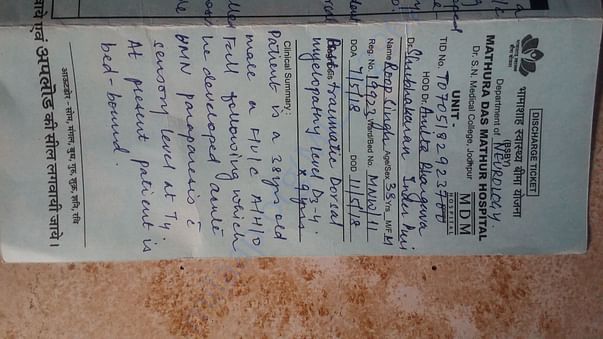 DISCHARGE TICKET
भामाशाह स्वास्थ्य बीमा योजना
(BSBY)
Department of NEUROLOGY
MATHURA DAS MATHUR HOSPITAL
Dr. S.N. Medical College, Jodhpur
MDM
HOSPITAL
UNIT -
TID No. T07051829237
HOD Dr. Amita Bhargava
Dr. Shubhakaran Inder Puri
Name Roop Singh Age/Sex 38 Yrs M/F M
Reg. No. 19223 Ward/Bed No. MNW/11
DOA 7/5/18 DOD 11/5/18
traumatic Dorsal
myelopathy level D3-4.
x 9 yrs
Clinical Summary:
Patient is a 38 yrs old
male a F/U/C A/H/O
fall following which
he developed acute
UMN paraparesis c̄
sensory level at T4.
At present patient is
bed-bound.
आउटडोर - सोम, मंगल, बुध, गुरू, शुक्र, शनि, रवि
अपलोड की सील लगावी जावे।